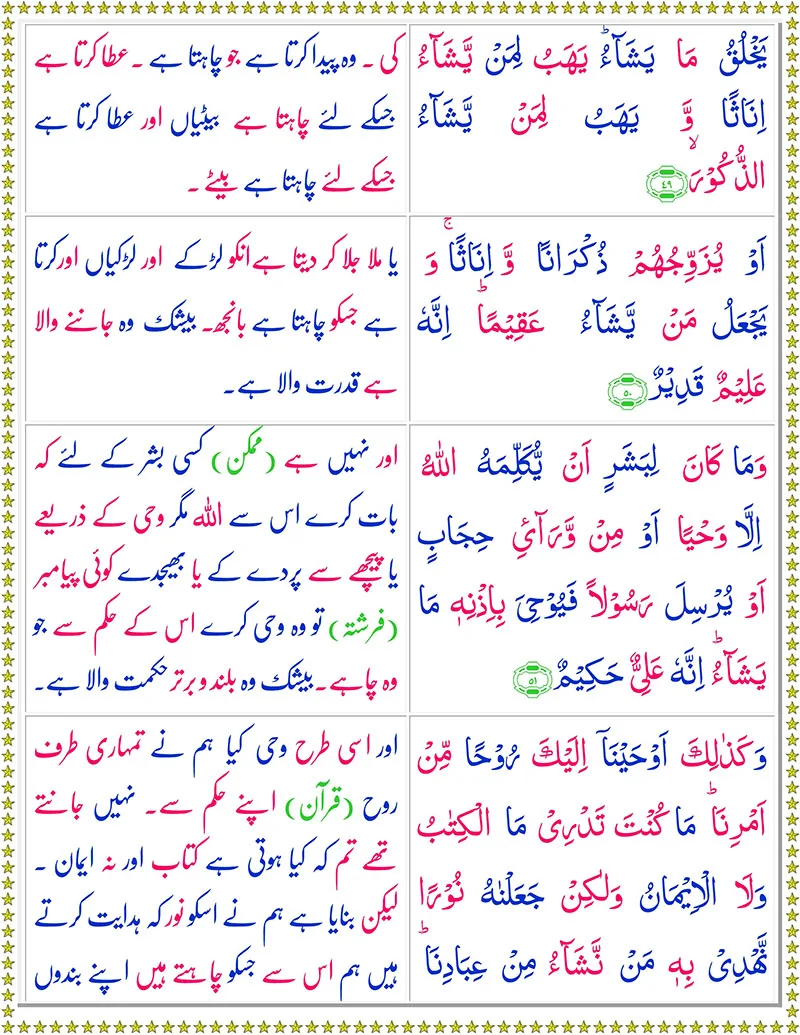 يَخۡلُقُ مَا يَشَآءُ‌ؕ يَهَبُ لِمَنۡ يَّشَآءُ
اِنَاثًا وَّ يَهَبُ لِمَنۡ يَّشَآءُ
الذُّكُوۡرَۙ‏ ﴿۴۹﴾
کی ۔ وہ پیدا کرتا ہے جو چاہتا ہے ۔ عطا کرتا ہے
جسکے لئے چاہتا ہے بیٹیاں اور عطا کرتا ہے
جسکے لئے چاہتا ہے بیٹے ۔
اَوۡ يُزَوِّجُهُمۡ ذُكۡرَانًا وَّاِنَاثًا‌ ۚ وَ
يَجۡعَلُ مَنۡ يَّشَآءُ عَقِيۡمًا‌ؕ اِنَّهٗ
عَلِيۡمٌ قَدِيۡرٌ‏ ﴿۵۰﴾
یا ملا جلا کر دیتا ہے انکو لڑکے اور لڑکیاں اور کرتا
ہے جسکو چاہتا ہے بانجھ۔ بیشک وہ جاننے والا
ہے قدرت والا ہے۔
وَمَا كَانَ لِبَشَرٍ اَنۡ يُّكَلِّمَهُ اللّٰهُ
اِلَّا وَحۡيًا اَوۡ مِنۡ وَّرَآئِ حِجَابٍ
اَوۡ يُرۡسِلَ رَسُوۡلاً فَيُوۡحِىَ بِاِذۡنِهٖ مَا
يَشَآءُ‌ؕ اِنَّهٗ عَلِىٌّ حَكِيۡمٌ‏ ﴿۵۱﴾
اور نہیں ہے (ممکن) کسی بشر کے لئے کہ
بات کرے اس سے اللہ مگر وحی کے ذریعے
یا پیچھے سے پردے کے یا بھیجدے کوئی پیامبر
(فرشتہ) تو وہ وحی کرے اس کے حکم سے جو
وہ چاہے۔ بیشک وہ بلند و برتر حکمت والا ہے۔
وَكَذٰلِكَ اَوۡحَيۡنَاۤ اِلَيۡكَ رُوۡحًا مِّنۡ
اَمۡرِنَا‌ ؕ مَا كُنۡتَ تَدۡرِىۡ مَا الۡكِتٰبُ
وَلَا الۡاِيۡمَانُ وَلٰـكِنۡ جَعَلۡنٰهُ نُوۡرًا
نَّهۡدِىۡ بِهٖ مَنۡ نَّشَآءُ مِنۡ عِبَادِنَا‌ ؕ
اور اسی طرح وحی کیا ہم نے تمہاری طرف
روح (قرآن) اپنے حکم سے۔ نہیں جانتے
تھے تم کہ کیا ہوتی ہے کتاب اور نہ ایمان ۔
لیکن بنایا ہے ہم نے اسکو نور کہ ہدایت کرتے
ہیں ہم اس سے جسکو چاہتے ہیں اپنے بندوں